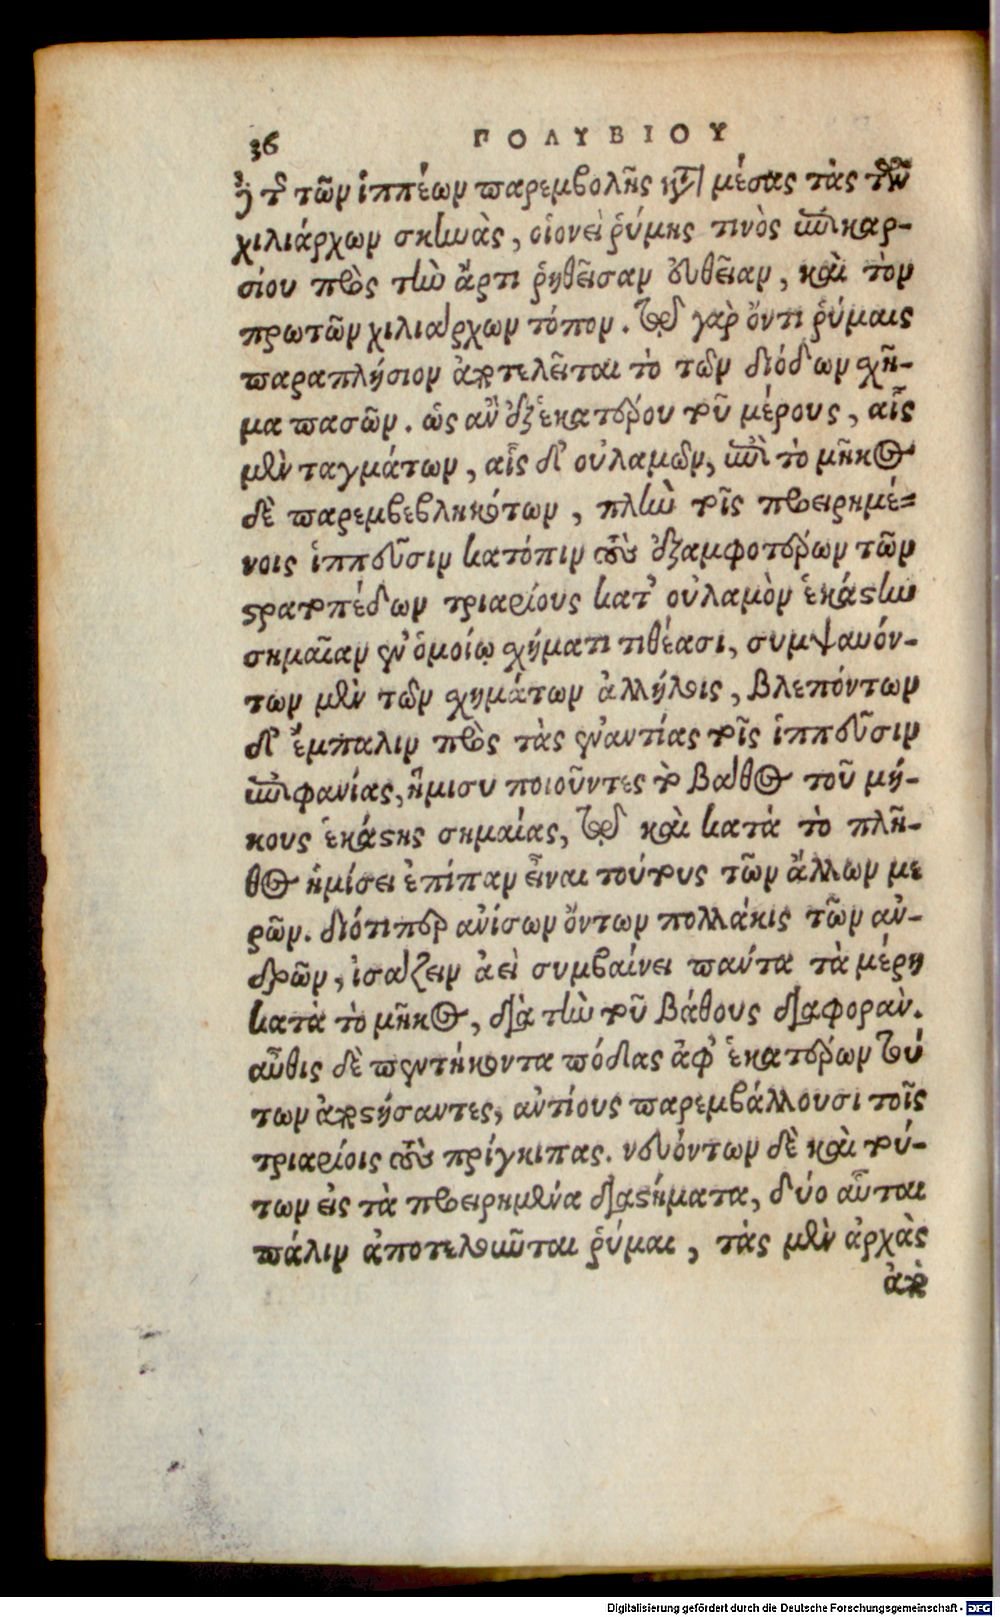 36 ΠΟΛΥΒΙΟΥ
ἢ τὸ τῶν ἱππέων παρεμβολῆς κατὰ μέσας τὰς τῶν
χιλιάρχων σκηνὰς, οἱονεὶ ῥύμης τινὸς ἐπικαρ-
σίου πρὸς τὴν ἄρτι ῥηθεῖσαν εὐθεῖαν, καὶ τὸν
πρωτῶν χιλιάρχων τόπον. τῷ γὰρ ὄντι ῥύμαις
παραπλήσιον ἀποτελεῖται τὸ τῶν διόδων χῆ-
μα πασῶν. ὡς ἂν ἐξ ἑκατέρου τοῦ μέρους, αἷς
μὲν ταγμάτων, αἷς δ' οὐλαμῶν, ἐπὶ τὸ μῆκος
δὲ παρεμβεβληκότων, πλὴν τοῖς προειρημέ-
νοις ἱππεῦσιν κατόπιν τοὺς ἐξ ἀμφοτέρων τῶν
στρατοπέδων τριαρίους κατ' οὐλαμὸν ἑκάστην
σημαίαν ἐν ὁμοίῳ χήματι τιθέασι, συμψαυόν-
των μὲν τῶν χημάτων ἀλλήλοις, βλεπόντων
δ' ἔμπαλιν πρὸς τὰς ἐναντίας τοῖς ἱππεῦσιν
ἐπιφανίας, ἥμισυ ποιοῦντες τὸ βάθος τοῦ μή-
κους ἑκάστης σημαίας, τῷ καὶ κατὰ τὸ πλῆ-
θος ἡμίσει ἐπίπαν εἶναι τούτους τῶν ἄλλων με
ρῶν. διότιπερ ἀνίσων ὄντων πολλάκις τῶν ἀν-
δρῶν, ἰσάζειν ἀεὶ συμβαίνει πάντα τὰ μέρη
κατὰ τὸ μῆκος, διὰ τὴν τοῦ βάθους διαφοράν.
αὖθις δὲ πεντήκοντα πόδας ἀφ' ἑκατέρων τού
των ἀποστήσαντες, ἀντίους παρεμβάλλουσι τοῖς
τριαρίοις τοὺς πρίγκιπας. νευόντων δὲ καὶ τού-
των εἰς τὰ προειρημένα διαστήματα, δύο αὗται
πάλιν ἀποτελοῦνται ῥύμαι, τὰς μὲν ἀρχὰς
ἀπὸ